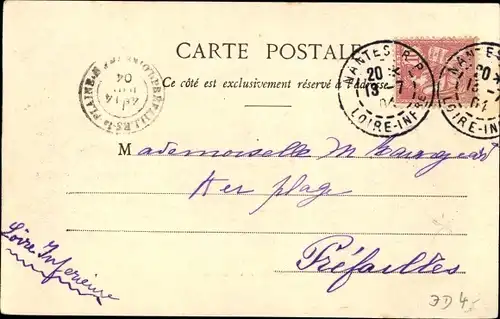 CARTE POSTALE
Ce côté est exclusivement réservé à l'adresse
NANTES R.P.
20
13 7
04
LOIRE-INF
NANTES
20
13
04
LOIRE-INF
LA PLAINE
14
04
Mademoiselle M Bourgeois
Ker plage
Préfailles
Loire Inferieure